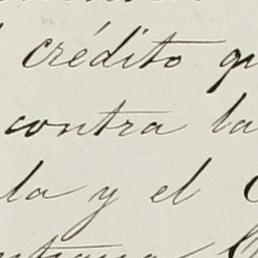 crédito qu
contra la
la y el